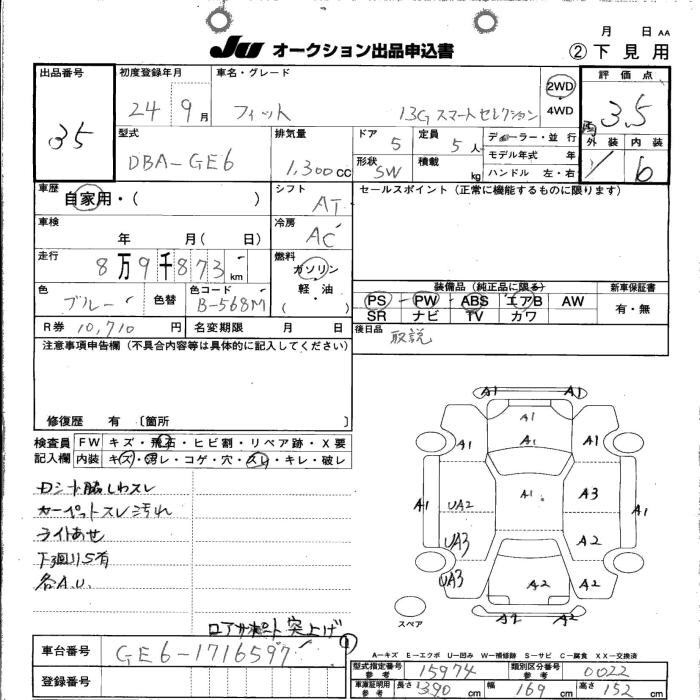 月 日 AA
JU オークション出品申込書 ②下見用
出品番号 初度登録年月 車名・グレード 評価点
35 24 9月 フィット 13G スマートセレクション 2WD 4WD 3.5
型式 排気量 ドア 定員 ディーラー・並行 外装 内装
DBA-GE6 1,300cc 5 5人 モデル年式 年 b
形状 積載 ハンドル 左・右
SW kg
車歴 シフト セールスポイント(正常に機能するものに限ります)
自家用・( ) AT
車検 冷房
年 月( 日) AC
走行 燃料
8万9千873km ガソリン
軽・油
( )
色 色替 色コード 装備品(純正品に限る) 新車保証書
ブルー B-568M PS PW ABS エアB AW 有・無
SR ナビ TV カワ
R券 10,710円 名変期限 月 日 後日品 取説
注意事項申告欄(不具合内容等は具体的に記入してください)
修復歴 有 〔箇所 〕
検査員 FW キズ・飛石・ヒビ割・リペア跡・X要
記入欄 内装 キズ・汚レ・コゲ・穴・スレ・キレ・破レ
カーペットスレ汚れ
ライトあせ
各A.U.
突上げ
A1 A1
A1
A1 A1 A1
A1 UA2 A1 A3 A1
UA3 A2
UA3 A2 A2
A2 A2
スペア
A－キズ E－エクボ U－凹み W－補修跡 S－サビ C－腐食 XX－交換済
車台番号 GE6-1716597
登録番号
型式指定番号 参考 15974 類別区分番号 参考 0022
車庫証明用 参考 長さ 390cm 幅 169cm 高さ 152cm